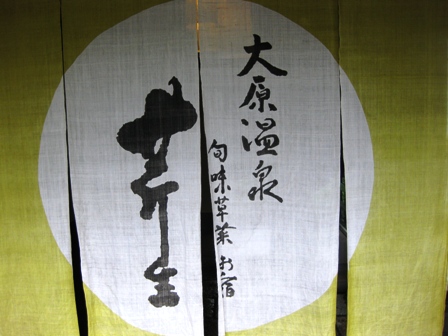 大原温泉
旬味草菜 お宿
芹生